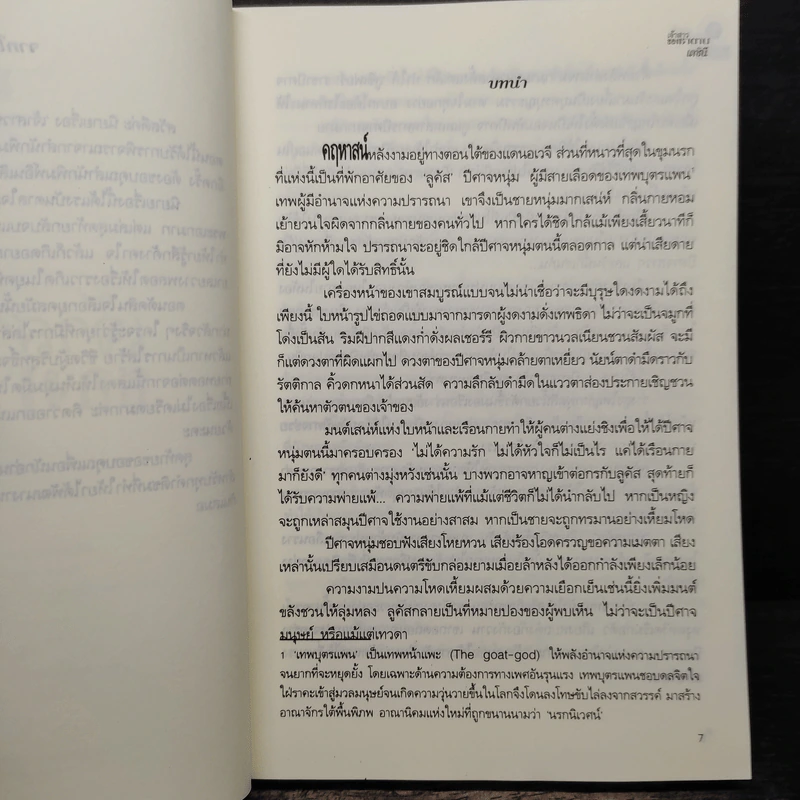 บทนำ
คฤหาสน์หลังงามอยู่ทางตอนใต้ของแดนอเวจี ส่วนที่หนาวที่สุดในขุมนรก
ที่แห่งนี้เป็นที่พักอาศัยของ 'ลูคัส' ปีศาจหนุ่ม ผู้มีสายเลือดของเทพบุตรแพน¹
เทพผู้มีอำนาจแห่งความปรารถนา เขาจึงเป็นชายหนุ่มมากเสน่ห์ กลิ่นกายหอม
เย้ายวนใจผิดจากกลิ่นกายของคนทั่วไป หากใครได้ชิดใกล้แม้เพียงเสี้ยวนาทีก็
มิอาจหักห้ามใจ ปรารถนาจะอยู่ชิดใกล้ปีศาจหนุ่มตนนี้ตลอดกาล แต่น่าเสียดาย
ที่ยังไม่มีผู้ใดได้รับสิทธิ์นั้น
เครื่องหน้าของเขาสมบูรณ์แบบจนไม่น่าเชื่อว่าจะมีบุรุษใดงดงามได้ถึง
เพียงนี้ ใบหน้ารูปไข่ถอดแบบมาจากมารดาผู้งดงามดั่งเทพธิดา ไม่ว่าจะเป็นจมูกที่
โด่งเป็นสัน ริมฝีปากสีแดงก่ำดั่งผลเชอร์รี ผิวกายขาวนวลเนียนชวนสัมผัส จะมี
ก็แต่ดวงตาที่ผิดแผกไป ดวงตาของปีศาจหนุ่มคล้ายตาเหยี่ยว นัยน์ตาดำมืดราวกับ
รัตติกาล คิ้วดกหนาได้ส่วนสัด ความลึกลับดำมืดในแววตาส่องประกายเชิญชวน
ให้ค้นหาตัวตนของเจ้าของ
มนต์เสน่ห์แห่งใบหน้าและเรือนกายทำให้ผู้คนต่างแย่งชิงเพื่อให้ได้ปีศาจ
หนุ่มตนนี้มาครอบครอง 'ไม่ได้ความรัก ไม่ได้หัวใจก็ไม่เป็นไร แค่ได้เรือนกาย
มาก็ยังดี' ทุกคนต่างมุ่งหวังเช่นนั้น บางพวกอาจหาญเข้าต่อกรกับลูคัส สุดท้ายก็
ได้รับความพ่ายแพ้... ความพ่ายแพ้ที่แม้แต่ชีวิตก็ไม่ได้นำกลับไป หากเป็นหญิง
จะถูกเหล่าสมุนปีศาจใช้งานอย่างสาสม หากเป็นชายจะถูกทรมานอย่างเหี้ยมโหด
ปีศาจหนุ่มชอบฟังเสียงโหยหวน เสียงร้องโอดครวญขอความเมตตา เสียง
เหล่านั้นเปรียบเสมือนดนตรีขับกล่อมยามเมื่อยล้าหลังได้ออกกำลังเพียงเล็กน้อย
ความงามปนความโหดเหี้ยมผสมด้วยความเยือกเย็นเช่นนี้ยิ่งเพิ่มมนต์
ขลังชวนให้ลุ่มหลง ลูคัสกลายเป็นที่หมายปองของผู้พบเห็น ไม่ว่าจะเป็นปีศาจ
มนุษย์ หรือแม้แต่เทวดา
1 'เทพบุตรแพน' เป็นเทพหน้าแพะ (The goat-god) ให้พลังอำนาจแห่งความปรารถนา
จนยากที่จะหยุดยั้ง โดยเฉพาะด้านความต้องการทางเพศอันรุนแรง เทพบุตรแพนชอบดลจิตใจ
ใฝ่ราคะเข้าสู่มวลมนุษย์จนเกิดความวุ่นวายขึ้นในโลกจึงโดนลงโทษขับไล่ลงจากสวรรค์ มาสร้าง
อาณาจักรใต้พื้นพิภพ อาณานิคมแห่งใหม่ที่ถูกขนานนามว่า 'นรกนิเวศน์'
7